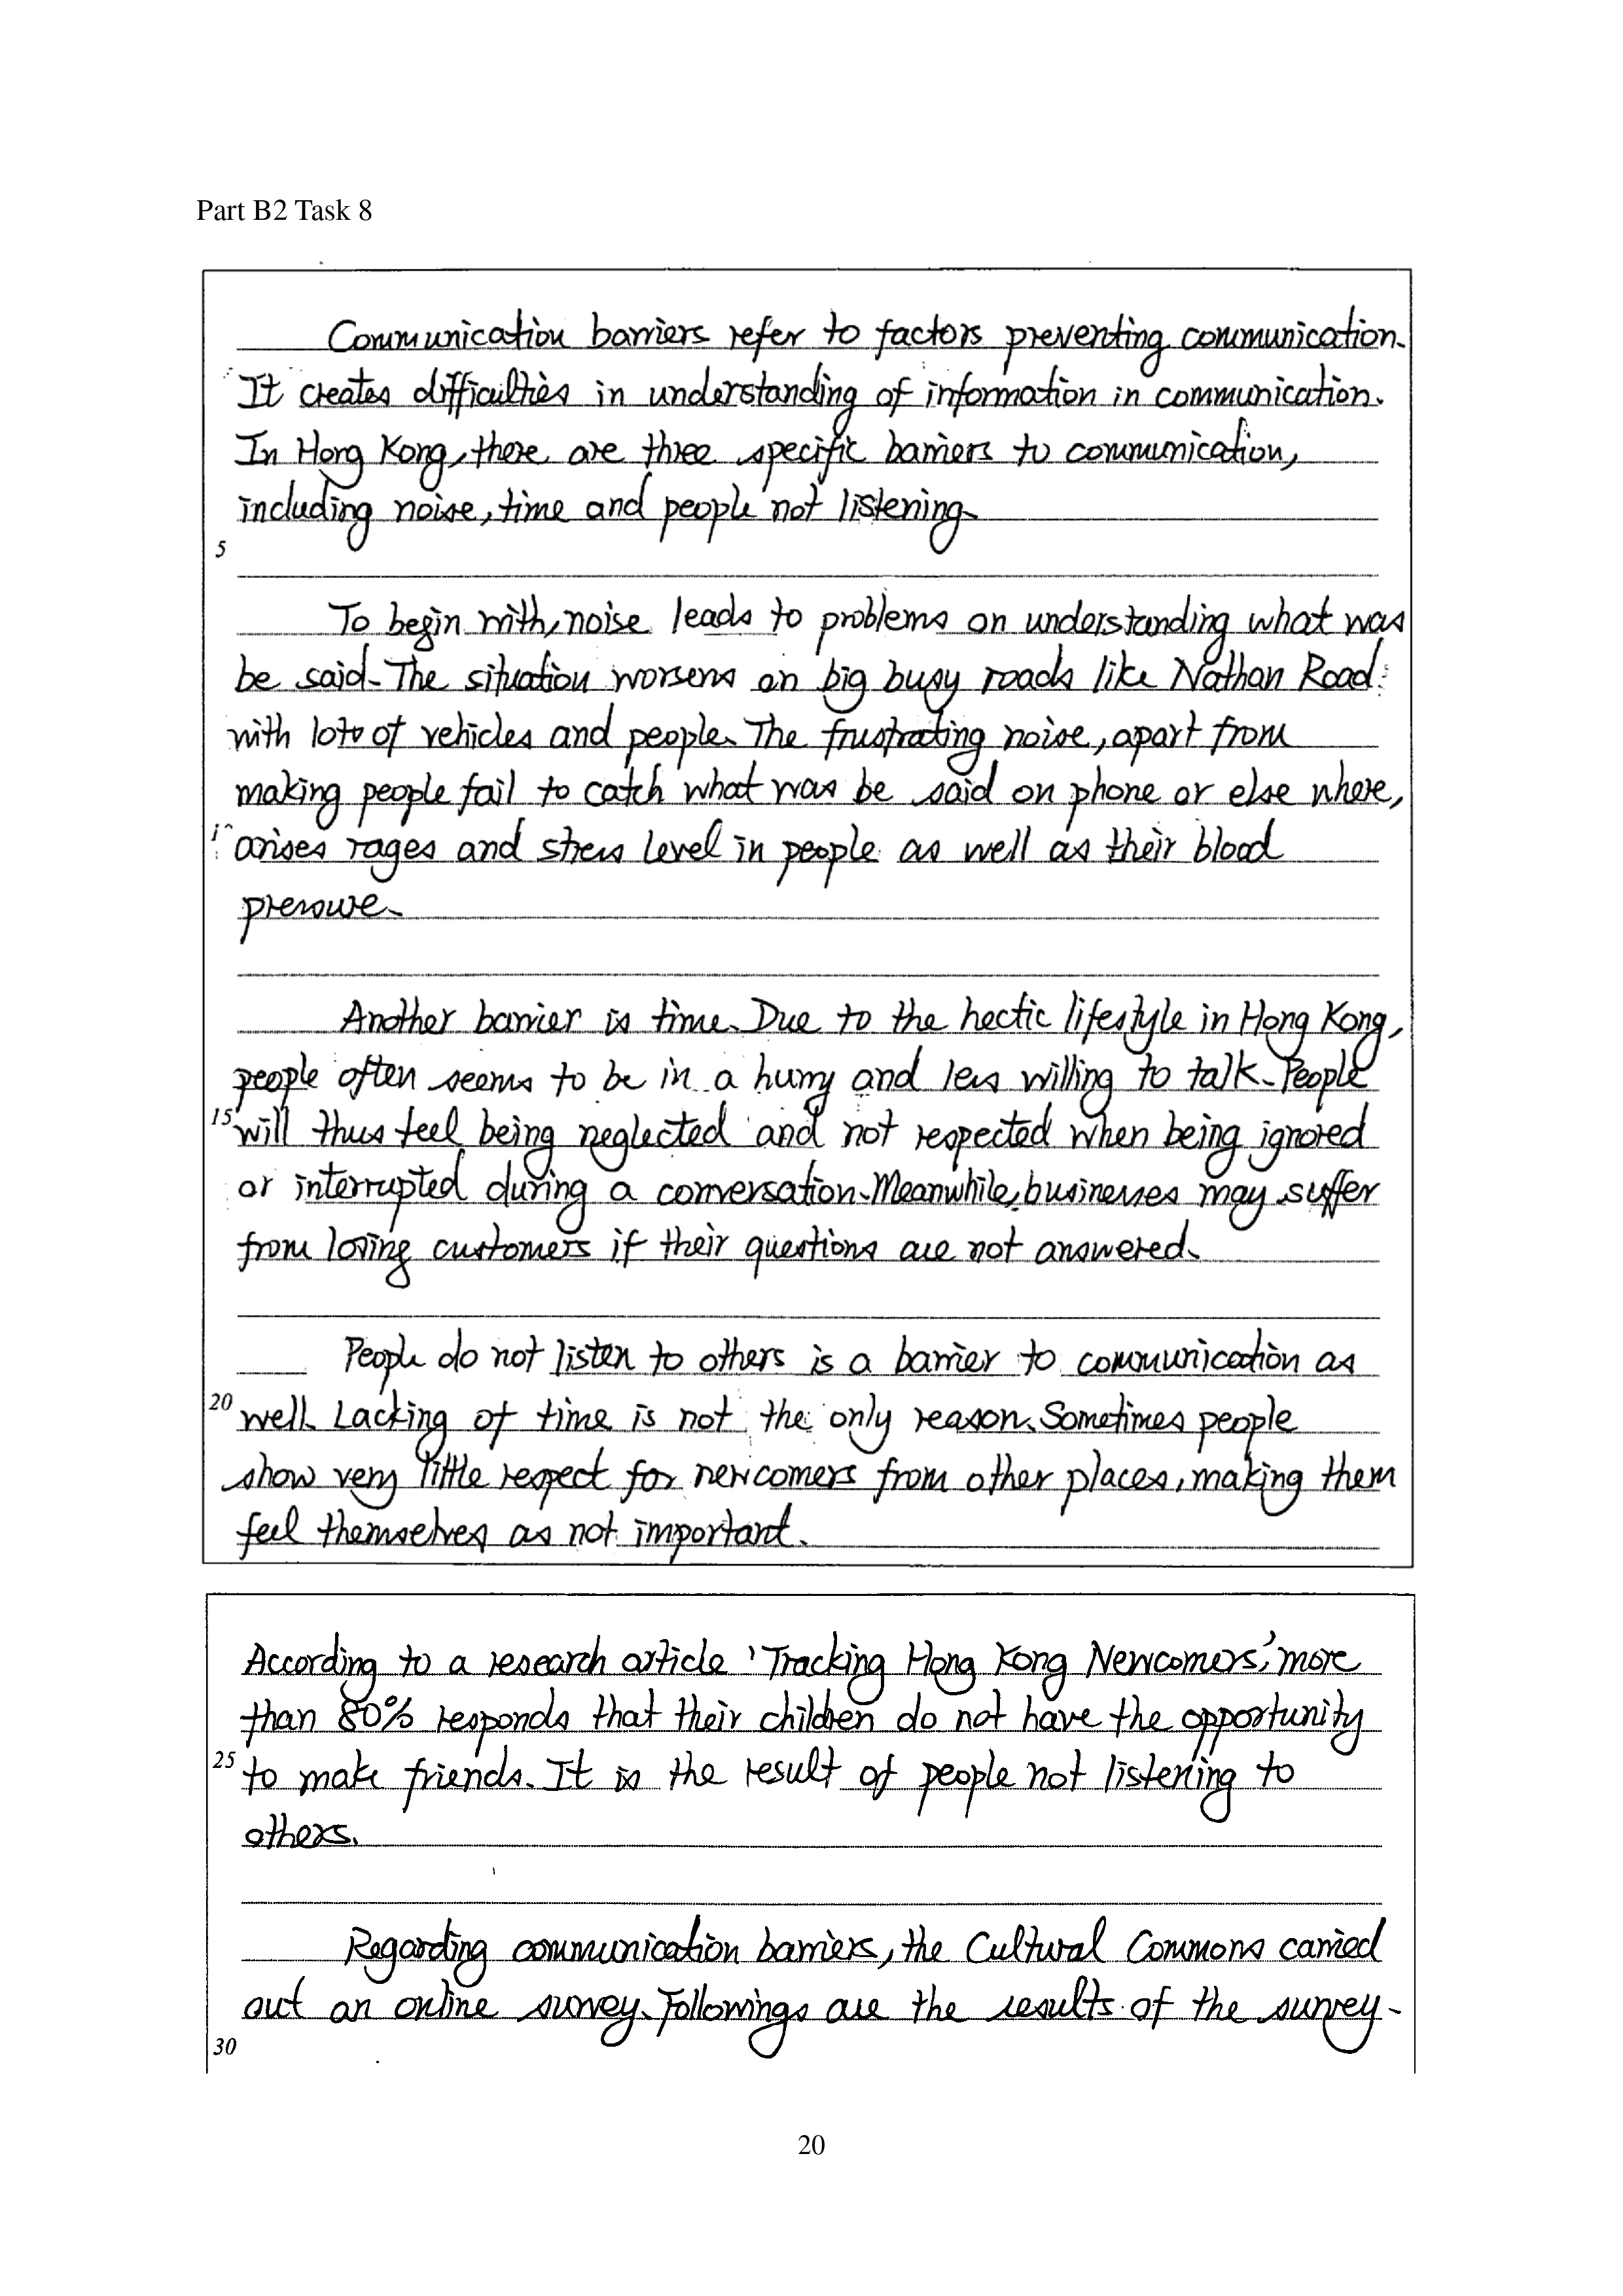 Part B2 Task 8
Communication barriers refer to factors preventing communication.
It creates difficulties in understanding of information in communication.
In Hong Kong, there are three specific barriers to communication,
including noise, time and people not listening.
5
To begin with, noise leads to problems on understanding what was
be said. The situation worsens on big busy roads like Nathan Road
with lots of vehicles and people. The frustrating noise, apart from
making people fail to catch what was be said on phone or else where,
10 arises rages and stress level in people as well as their blood
pressure.
Another barrier is time. Due to the hectic lifestyle in Hong Kong,
people often seems to be in a hurry and less willing to talk. People
15 will thus feel being neglected and not respected when being ignored
or interrupted during a conversation. Meanwhile, businesses may suffer
from losing customers if their questions are not answered.
People do not listen to others is a barrier to communication as
20 well. Lacking of time is not the only reason. Sometimes people
show very little respect for newcomers from other places, making them
feel themselves as not important.
According to a research article 'Tracking Hong Kong Newcomers', more
than 80% responds that their children do not have the opportunity
25 to make friends. It is the result of people not listening to
others.
Regarding communication barriers, the Cultural Commons carried
out an online survey. Followings are the results of the survey.
30
20